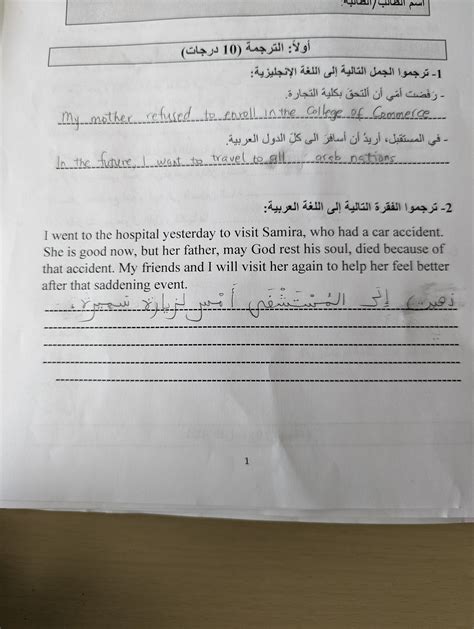 اسم الطالب/الطالبة:
أولاً: الترجمة (10 درجات)
1- ترجموا الجمل التالية إلى اللغة الإنجليزية:
- رفضت أمّي أن ألتحق بكلية التجارة.
My mother refused to enroll in the College of Commerce
- في المستقبل، أريدُ أن أسافرَ الى كلّ الدول العربية.
In the future, I want to travel to all arab nations
2- ترجموا الفقرة التالية إلى اللغة العربية:
I went to the hospital yesterday to visit Samira, who had a car accident.
She is good now, but her father, may God rest his soul, died because of
that accident. My friends and I will visit her again to help her feel better
after that saddening event.
إلَى المُسْتَشْفَى أَمْس لزيارة سميرة
1